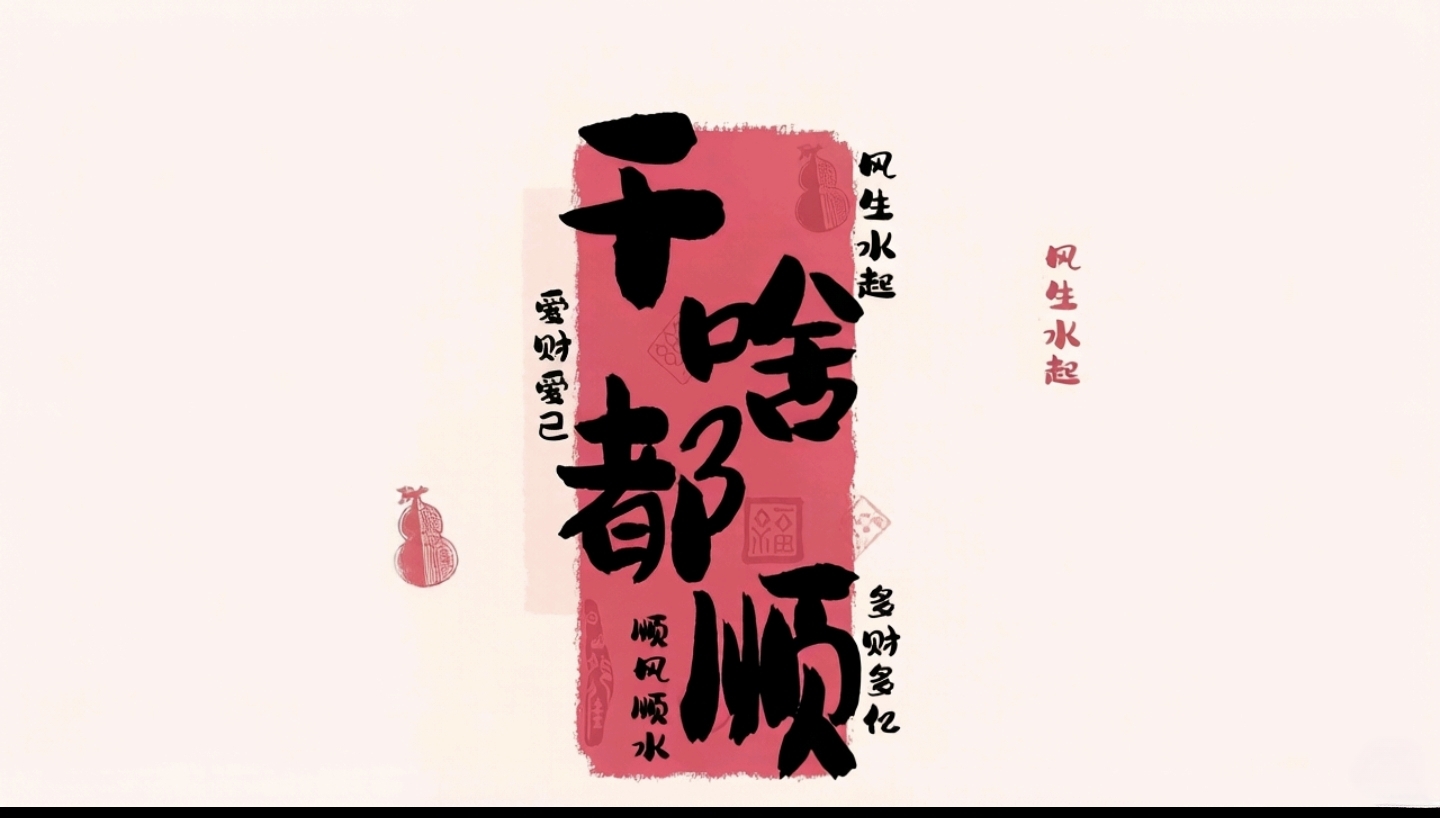 干啥都顺
风生水起
风生水起
爱财爱己
多财多亿
顺风顺水
福